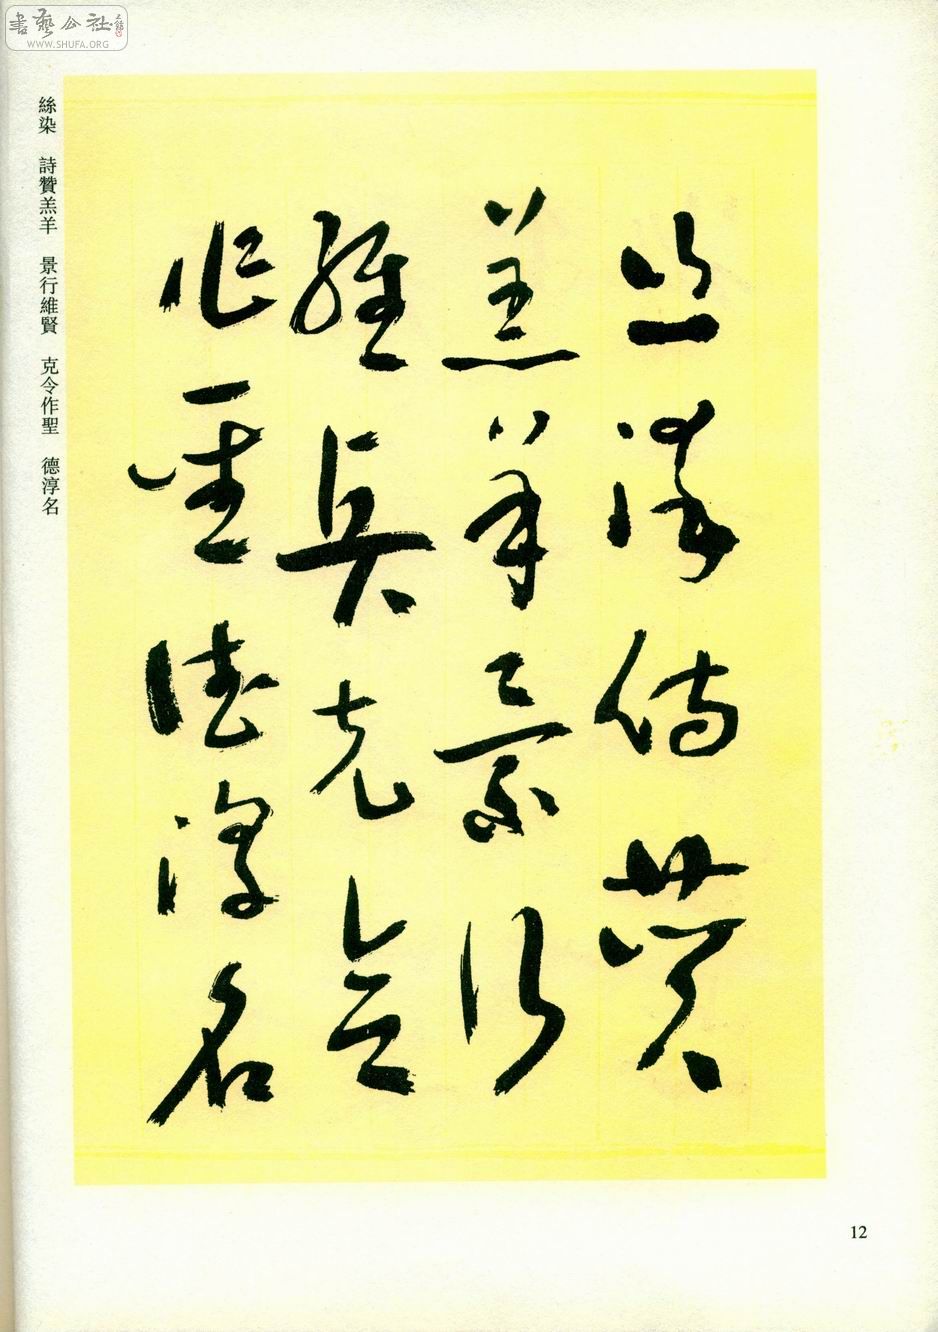 書藝公社
WWW.SHUFA.ORG
絲染詩贊
羔羊景行
維賢克念
作聖德淳名
絲染 詩贊羔羊 景行維賢 克令作聖 德淳名
12